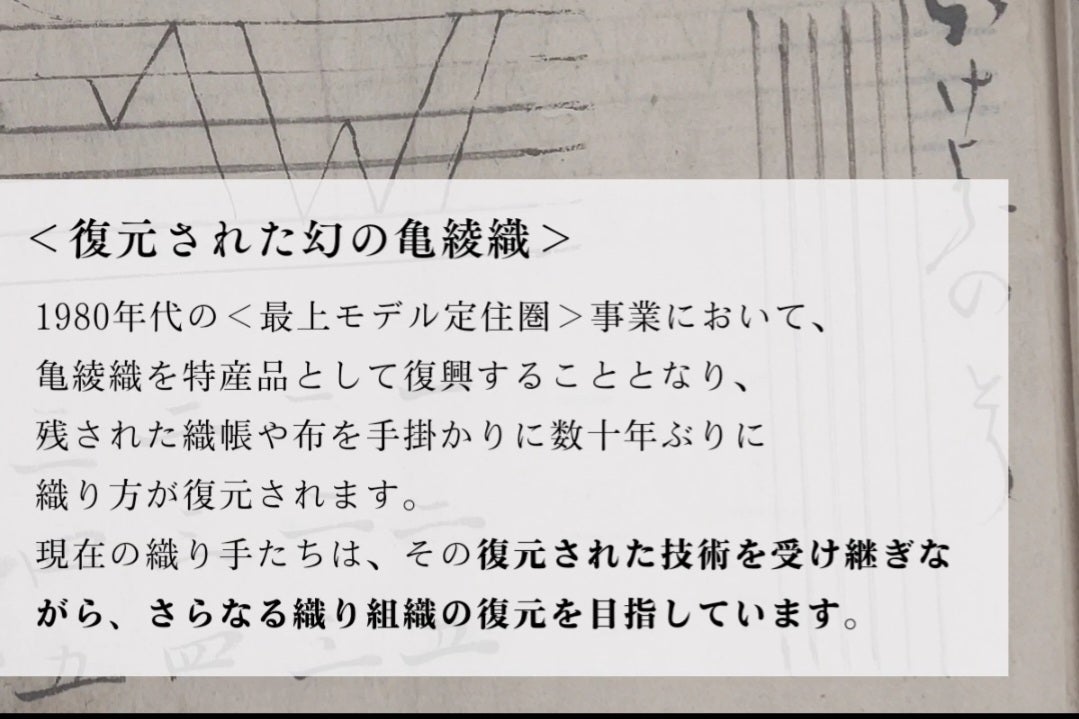 ＜復元された幻の亀綾織＞
1980年代の＜最上モデル定住圏＞事業において、
亀綾織を特産品として復興することとなり、
残された織帳や布を手掛かりに数十年ぶりに
織り方が復元されます。
現在の織り手たちは、その復元された技術を受け継ぎな
がら、さらなる織り組織の復元を目指しています。
五 四 三 五